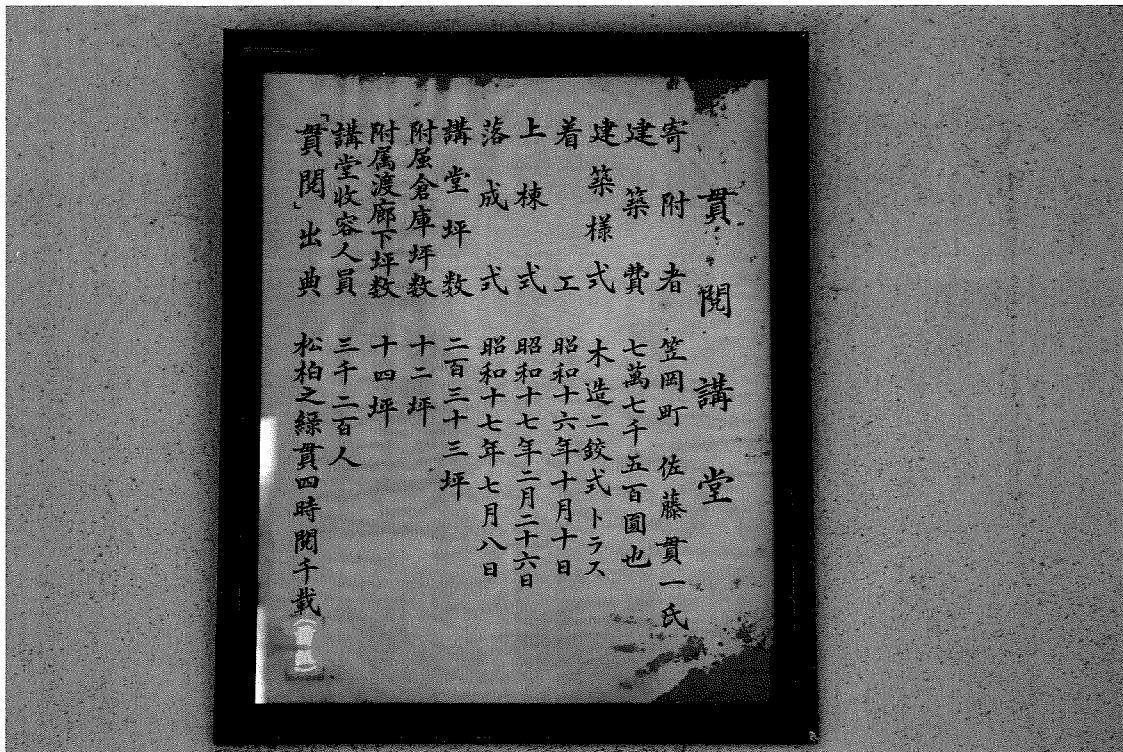 貫閲講堂
寄附者 笠岡町 佐藤貫一氏
建築費 七萬七千五百圓也
建築様式 木造二鉸式トラス
着工 昭和十六年十月十日
上棟式 昭和十七年二月二十六日
落成式 昭和十七年七月八日
講堂坪数 二百三十三坪
附属倉庫坪数 十二坪
附属渡廊下坪数 十四坪
講堂收容人員 三千二百人
「貫閲」出典 松柏之緑貫四時閲千載